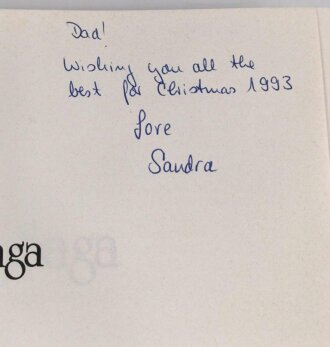 Dad!
Wishing you all the
best for Christmas 1993
Love
Sandra
aga